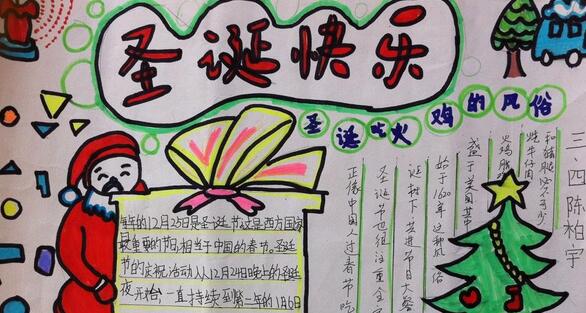 圣诞快乐
圣诞吃火鸡的风俗
三四陈柏宇
每年的12月25日是圣诞节这是西方国家
最重要的节日,相当于中国的春节。圣诞
节的庆祝活动从12月24日晚上的圣诞
夜开始,一直持续到第二年的1月6日
正像中国人过春节吃
圣诞节也很注重全家
诞树下共进节日大餐
始于1620年这种风俗
盛于美国其中
火鸡
和猪腿必不可少